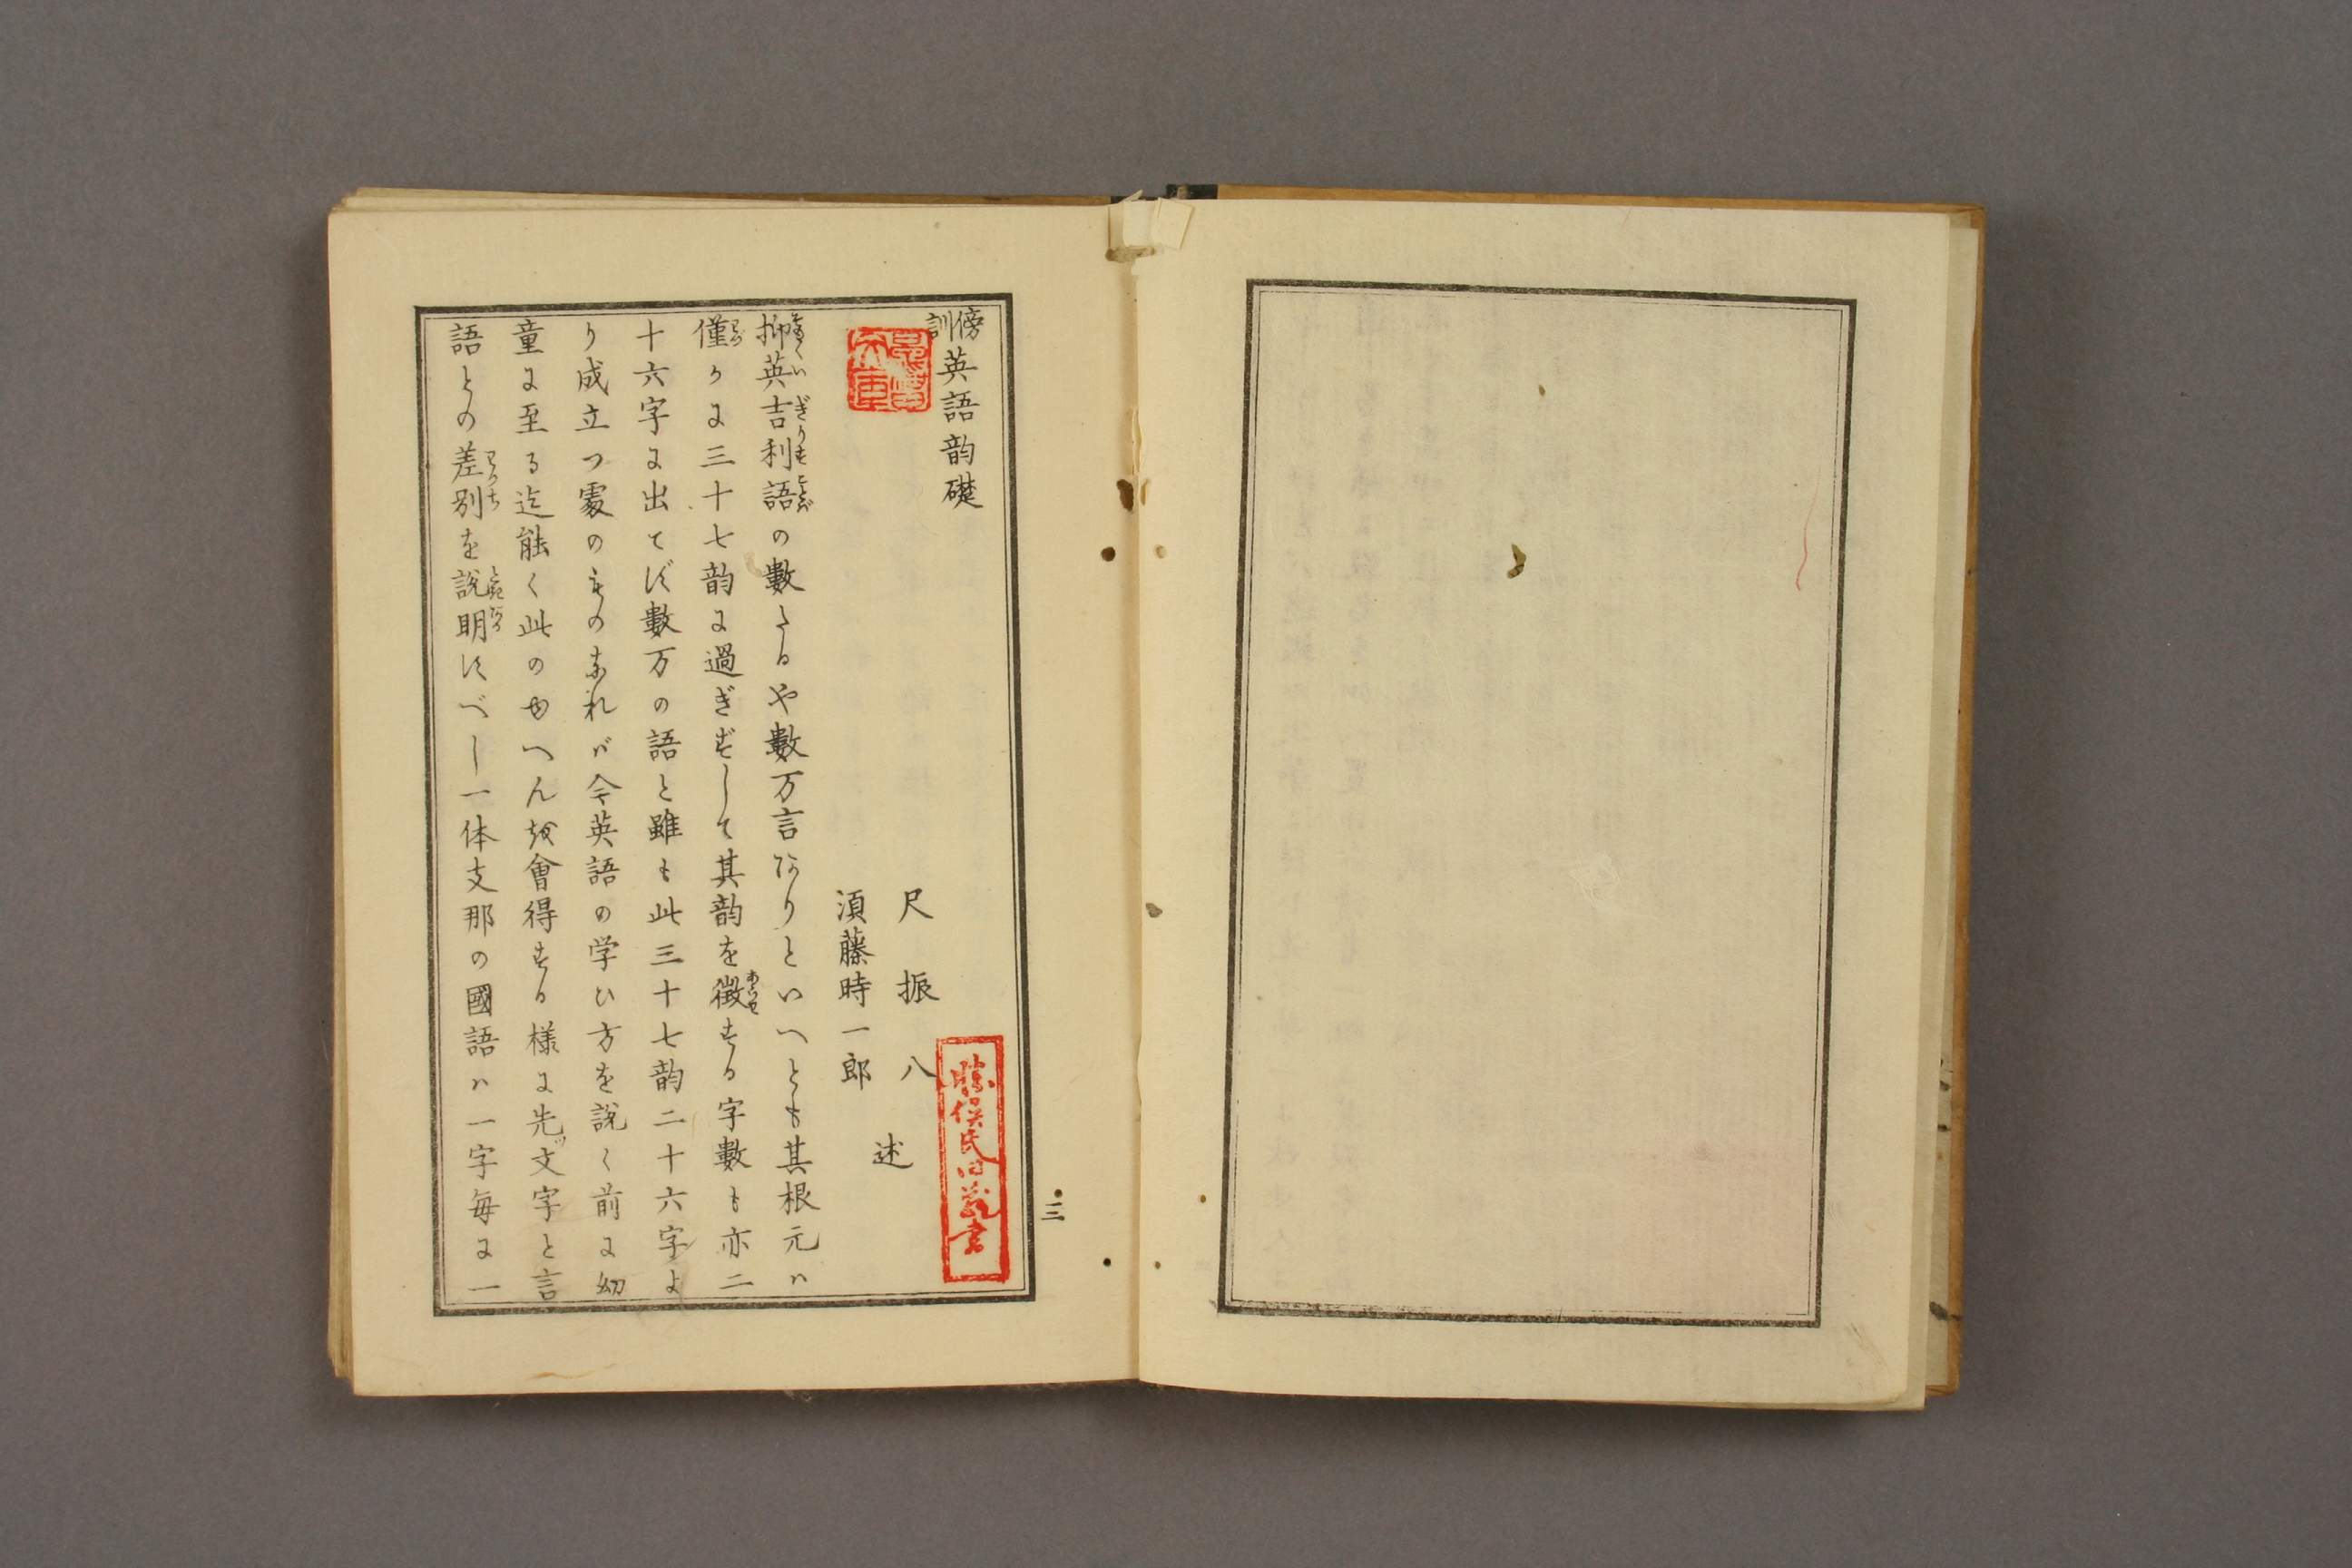 傍訓英語韵礎
尺振八
須藤時一郎
述
抑英吉利語の數たるや數万言なりといへとも其根元ハ
僅かに三十七韵に過ぎずして其韵を徴する字數も亦二
十六字に出でず數万の語と雖も此三十七韵二十六字よ
り成立つ處のものなれバ今英語の学ひ方を説く前に幼
童に至る迄能く此のわへんを會得する様に先ヅ文字と言
語との差別を説明すべし一体支那の國語ハ一字毎に一
三